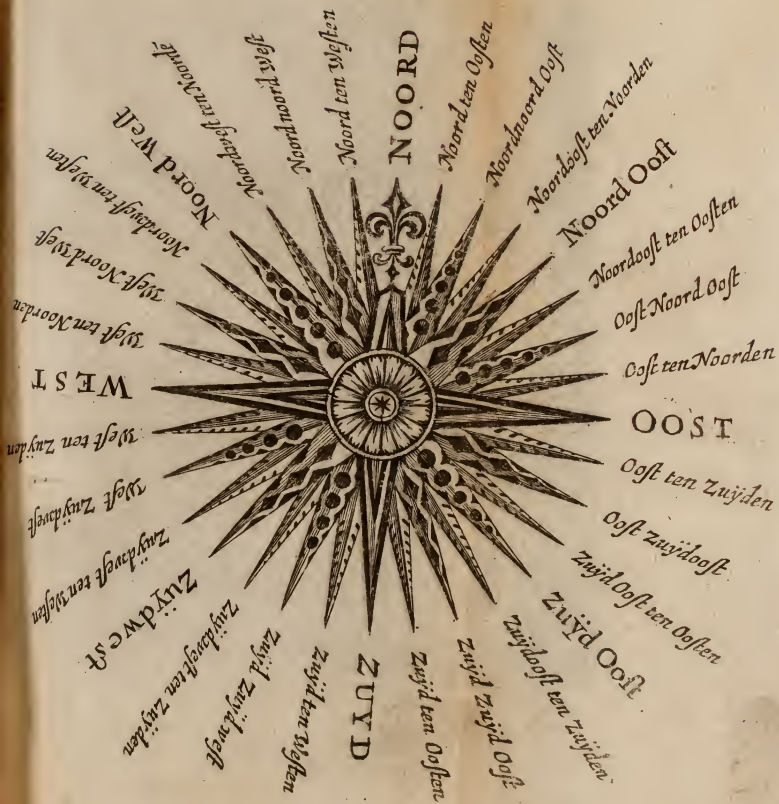 NOORD
Noord ten Ooſten
Noordnoord Ooſt
Noordooſt ten Noorden
Noord Ooſt
Noordooſt ten Ooſten
Ooſt Noord Ooſt
Ooſt ten Noorden
OOST
Ooſt ten Zuÿden
Ooſt Zuÿdooſt
Zuÿd Ooſt ten Ooſten
Zuÿd Ooſt
Zuÿdooſt ten Zuÿden
Zuÿd Zuÿd Ooſt
Zuÿd ten Ooſten
ZUYD
Zuÿd ten Weſten
Zuÿd Zuÿdweſt
Zuÿdweſt ten Zuÿden
Zuÿdweſt
Zuÿdweſt ten Weſten
Weſt Zuÿdweſt
Weſt ten Zuÿden
WEST
Weſt ten Noorden
Weſt Noord Weſt
Noordweſt ten Weſten
Noord Weſt
Noordweſt ten Noordē
Noordnoord Weſt
Noord ten Weſten